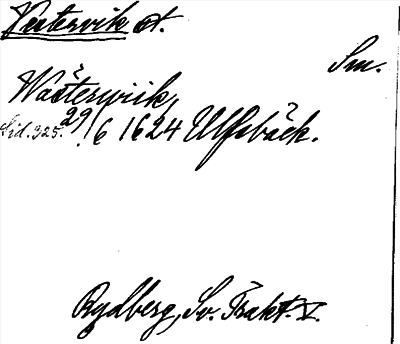 Västervik st.
Sm.
Wästerwiik,
Sid. 325. 29/6 1624 Ulfsbäck.
Rydberg, Sv. Trakt. V.